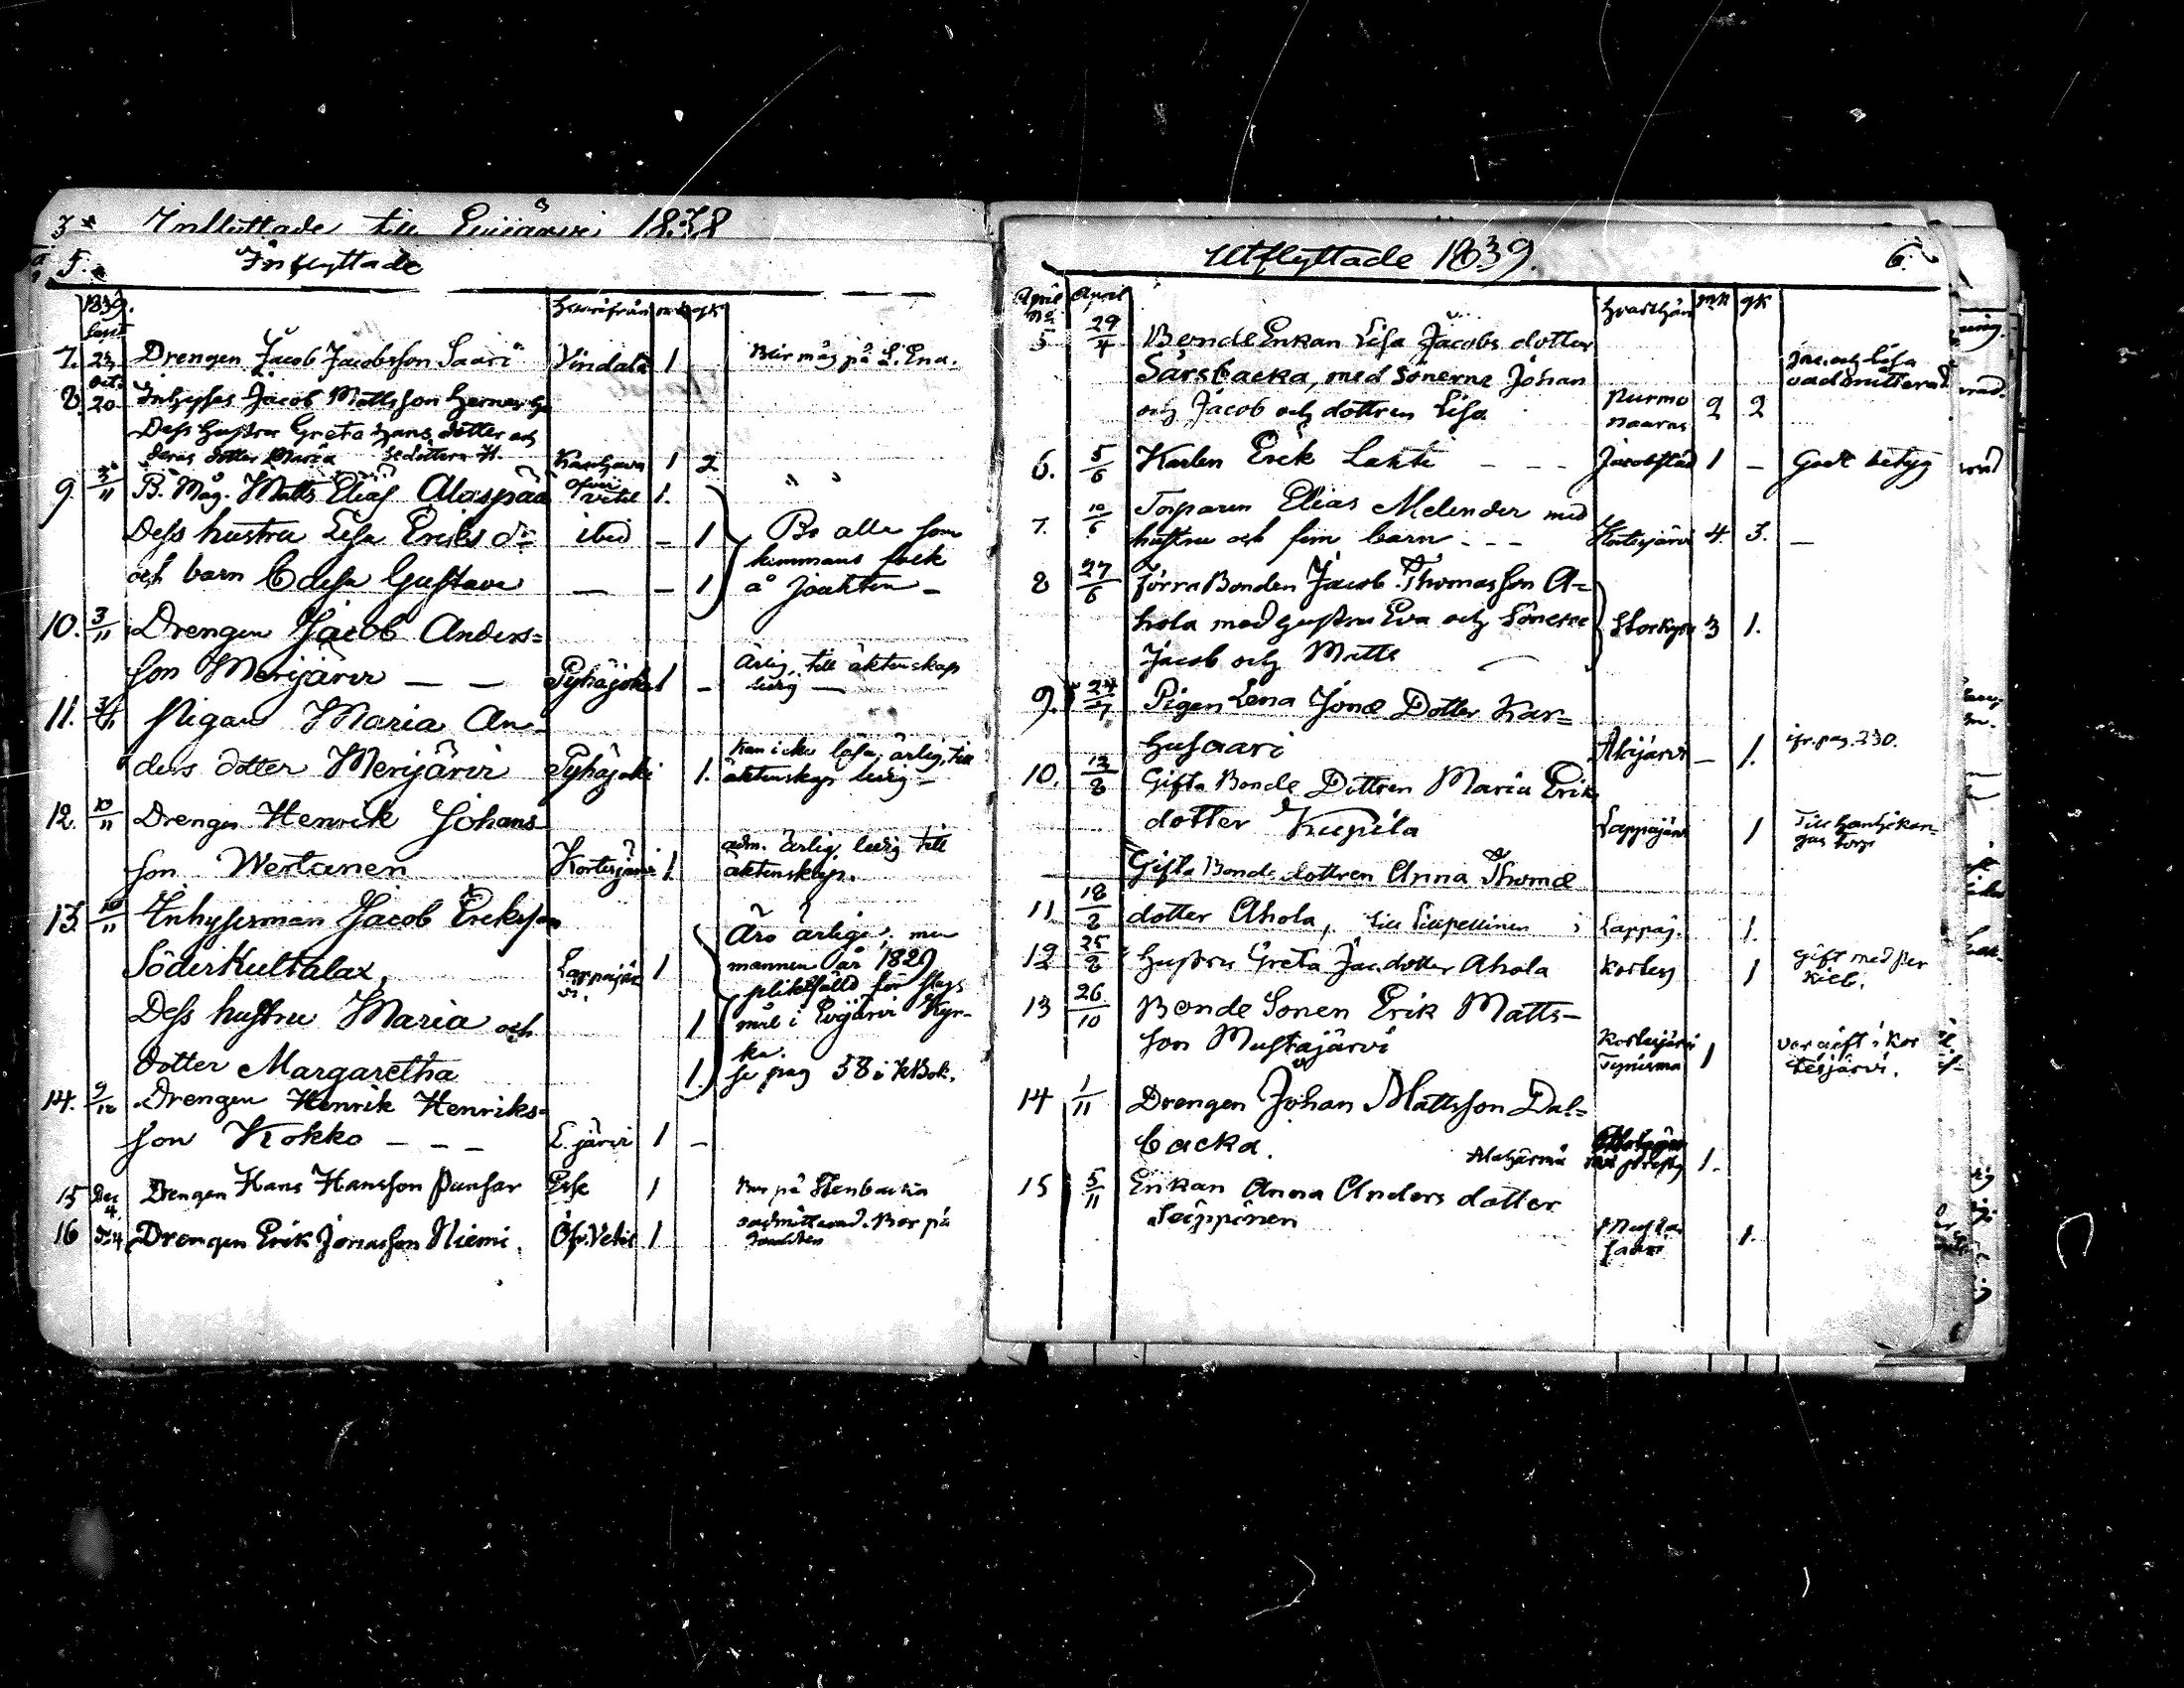 3 Inflyttade till Evijärvi 1838
5. Inflyttade
1839. Hvarifrån mk qk
Sept.
7. 23 Drengen Jacob Jacobsson Saari Vindala 1 Blir måg på L. Ena.
Oct.
8. 20 Inhyses Jacob Mattsson
Dess hustru Greta Hans dotter och
deras dotter Maria Kauhava 1 2
9. 3/11 B. Måg. Matts Eliæ Alaspää Öfver Vetil 1. " "
Dess hustru Lisa Eriks dr ibid – 1 Bo alla som
och barn Edesa Gustava — – 1 kommans folk
å Joukten –
10. 3/11 Drengen Jacob Anders=
son Merijärvi — — Pyhäjoki 1 – Ärlig, till äktenskap
ledig —
11. 3/11 Pigan Maria An-
ders dotter Merijärvi Pyhäjoki 1. Kan icke läsa, ärlig, till
äktenskap ledig –
12. 10/11 Drengen Henrik Johans
son Wertanen Kortesjärvi 1. adm. ärlig ledig till
äktenskap.
13. 10/11 Inhyserman Jacob Eriksson
Söderkultalax, Lappajärvi. 1 Äro ärliga, men
mannen år 1829
pliktfälld för slags
Dess hustru Maria och 1 mål i Evijärvi Kyr-
ka.
dotter Margaretha 1. se pag 58 i KBok.
14. 9/12 Drengen Henrik Henriks=
son Kokko – – – L. järvi 1 –
15 Dec 4 Drengen Hans Hansson Punsar Esse 1 Bor på Stenbacka
16 Drengen Erik Jonasson Niemi. Öfv. Vetil 1 oadmitterad. Bor på
Utflyttade 1839. 6.
April No April Hvarthän mk qk
5 29/4 BondeEnkan Lisa Jacobs dotter
Särsbacka, med Sönerne Johan
och Jacob och dottren Lisa. Purmo 2 2 Jac. och Lisa
oadmitterad
6. 5/6 Karlen Erik Lahti – – – Jacobstad 1 – Godt betyg
7. 10/6 Torparen Elias Melender med
hustru och fem barn – – – Kortesjärvi 4. 3. —
8 27/6 Förra Bonden Jacob Thomasson A=
hola med hustru Eva och Sönerne Storkyro 3 1.
Jacob och Matts
9. 24/7 Pigan Lena Jonæ Dotter Kar=
husaari Alajärvi – 1. ifr. pag. 230.
10. 13/8 Gifta Bonde Dottren Maria Erik
dotter Kupila Lappajärvi 1 Till
torp
Gifta Bonde dottren Anna Thomæ
11 18/8 dotter Ahola, till i Lappaj. 1.
12 25/8 Hustru Greta Jac. dotter Ahola Kortesj 1 gift med
13 26/10 Bonde Sonen Erik Matts–
son Mustajärvi Kortesjärvi 1 var gift i Kor
tesjärvi.
14 1/11 Drengen Johan Mattsson Dal=
backa. Alahärmä 1.
15 5/11 Enkan Anna Anders dotter
Seippinen Mustasaari 1.